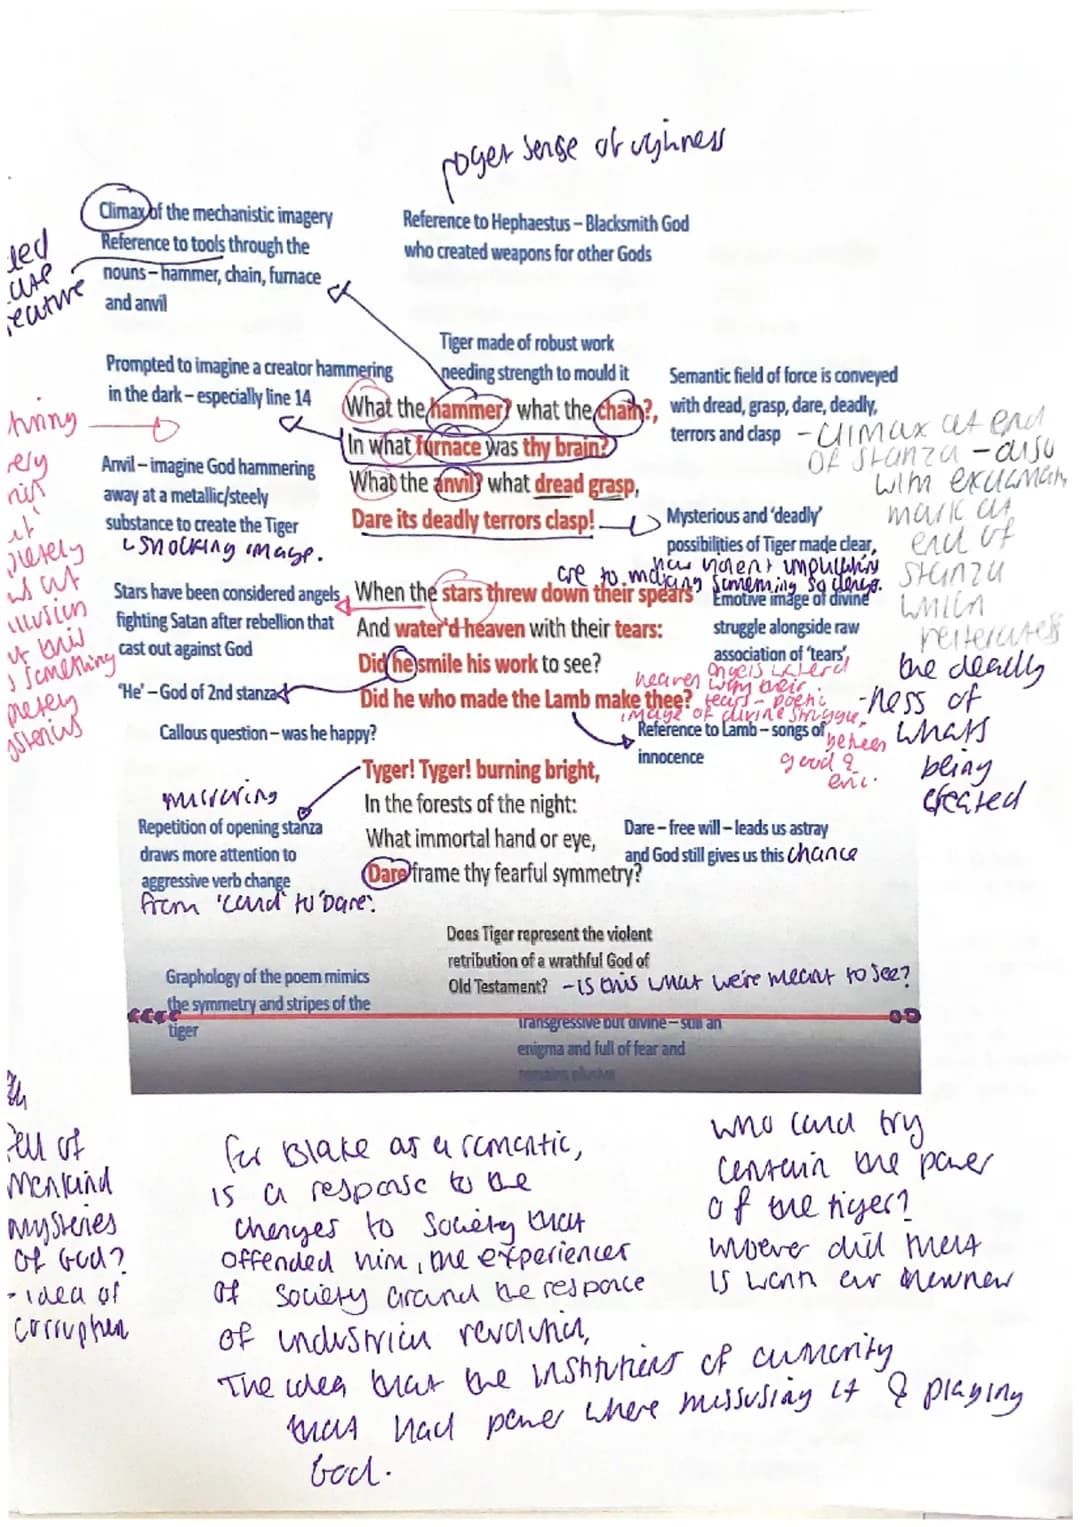 sense of ughness
Climax of the mechanistic imagery
Reference to tools through the
nouns – hammer, chain, furnace
and anvil
Reference to Hephaestus – Blacksmith God
who created weapons for other Gods
Tiger made of robust work
needing strength to mould it
Prompted to imagine a creator hammering
in the dark – especially line 14
Semantic field of force is conveyed
with dread, grasp, dare, deadly,
terrors and clasp
- climax at end
of stanza - also
with exclamatn
mark at
end of
stanza
which
reiterates
the deadly
-ness of
whats
being
created
What the hammer? what the chain?,
In what furnace was thy brain?
What the anvil? what dread grasp,
Dare its deadly terrors clasp!
Anvil – imagine God hammering
away at a metallic/steely
substance to create the Tiger
shocking image.
Mysterious and 'deadly'
possibilities of Tiger made clear,
how violent
to making something so
Stars have been considered angels
fighting Satan after rebellion that
cast out against God
When the stars threw down their spears
And water'd heaven with their tears:
Did he smile his work to see?
Did he who made the Lamb make thee?
Emotive image of divine
struggle alongside raw
association of 'tears',
heaven angels waterd
with their
tears - poetic
image of divine struggle,
between
good &
evil.
'He' – God of 2nd stanza
Callous question – was he happy?
Reference to Lamb – songs of
innocence
Tyger! Tyger! burning bright,
In the forests of the night:
What immortal hand or eye,
Dare frame thy fearful symmetry?
mirroring
Repetition of opening stanza
draws more attention to
aggressive verb change
from 'could' to 'Dare'.
Dare – free will – leads us astray
and God still gives us this chance
Does Tiger represent the violent
retribution of a wrathful God of
Old Testament? - is this what we're meant to see?
Graphology of the poem mimics
the symmetry and stripes of the
tiger
Transgressive but divine – still an
enigma and full of fear and
remains elusive
of
mankind
mysteries
of God?
- idea of
corruption
for Blake as a romantic,
is a response to the
changes to society that
offended him, the experiences
of society around the responce
of industrial revolution,
The idea that the institutions of authority
that had power where missusing it & playing
God.
who could try
contain the power
of the tiger?
whoever did that
is